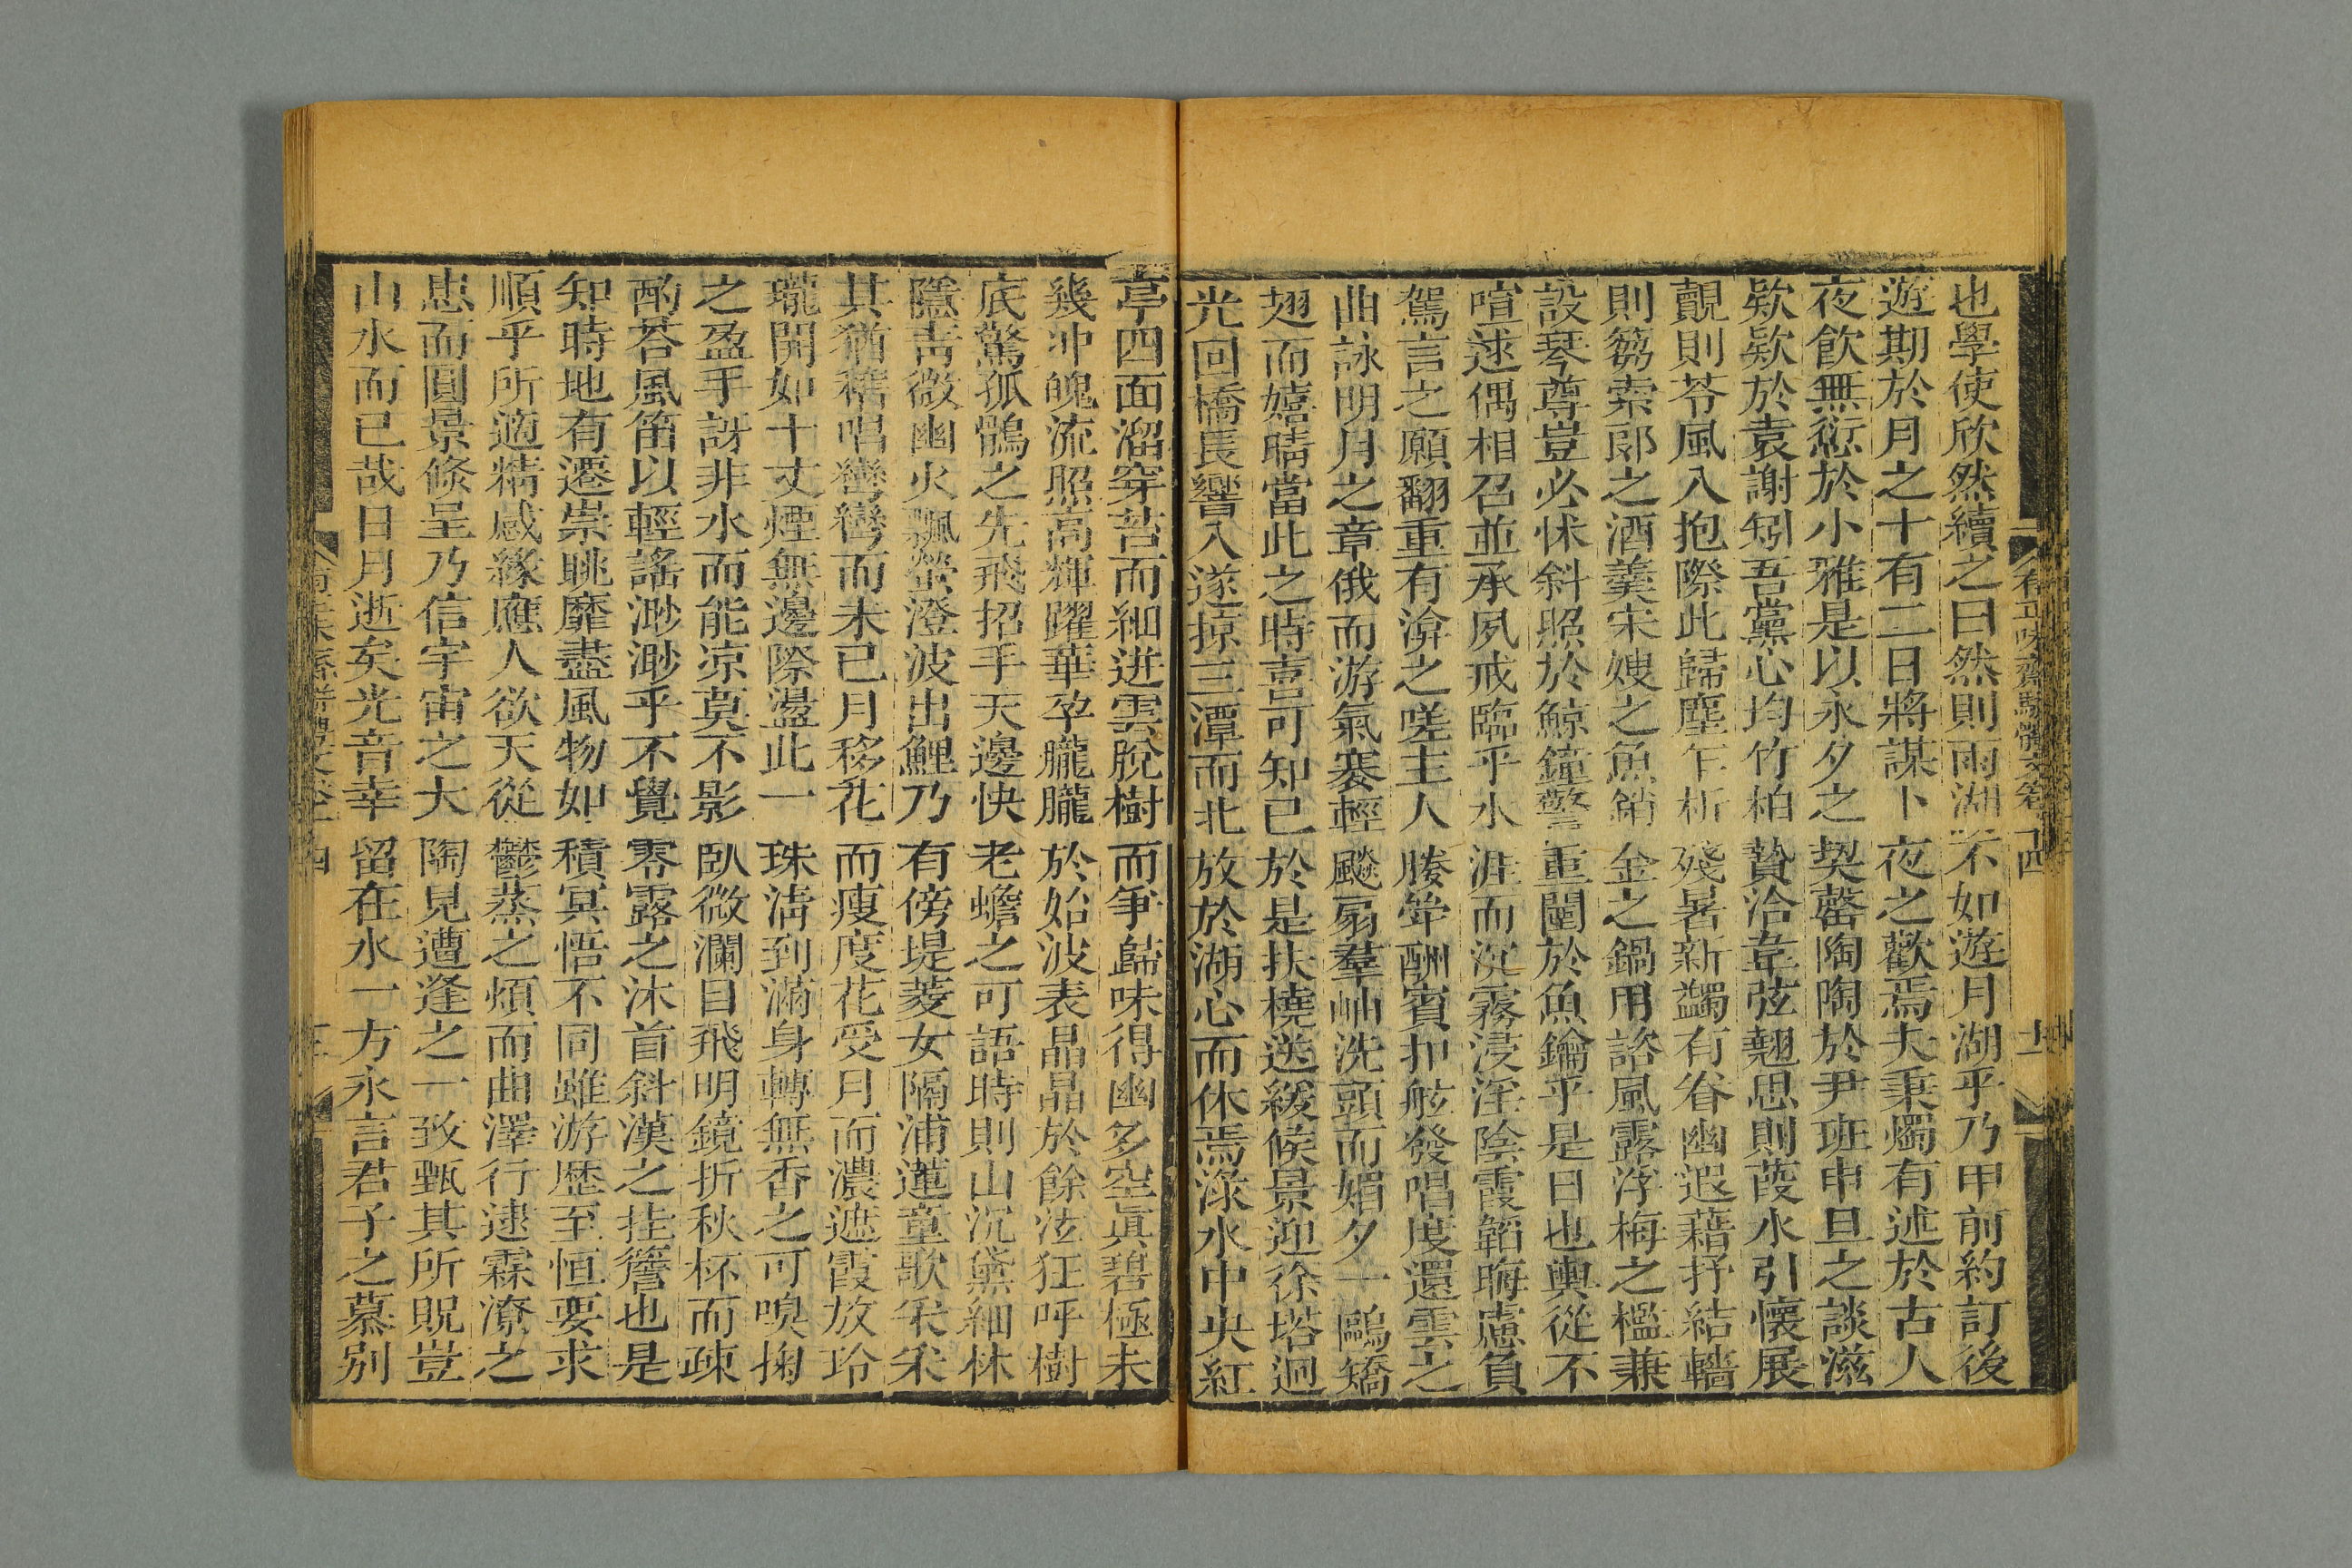 有正味齋駢體文卷十四
也學使欣然續之曰然則雨湖不如遊月湖乎乃甲前約訂後
遊期於月之十有二日將謀卜夜之歡焉夫秉燭有述於古人
夜飲無愆於小雅是以永夕之契罄陶陶於尹班申旦之談滋
欵欵於袁謝矧吾黨心均竹柏贄洽韋弦翹思則葭水引懷展
覿則苓風入抱際此歸塵乍析殘暑新蠲有眷幽遐藉抒結轖
則篘索郎之酒羹宋嫂之魚銷金之鍋用諮風露浮梅之檻兼
設琴尊豈必怵斜照於鯨鐘警重闉於魚鑰乎是日也輿從不
喧逑偶相召並承夙戒臨乎水涯而沉霧浸淫陰霞韜晦慮負
駕言之願翻重有渰之嗟主人媵斝酬賓扣舷發唱度還雲之
曲詠明月之章俄而游氣褰輕飈扇羣岫洗頭而媚夕一鷗矯
翅而嬉晴當此之時喜可知已於是扶橈送緩候景迎徐塔迴
光回橋長響入遂掠三潭而北放於湖心而休焉淥水中央紅
亭四面溜穿苔而細迸雲脫樹而爭歸味得幽多空眞碧極未
幾沖魄流照高輝躍華孕朧朧於始波表晶晶於餘泫狂呼樹
底驚孤鶻之先飛招手天邊快老蟾之可語時則山沉黛細林
隱靑微幽火飄螢澄波出鯉乃有傍堤菱女隔浦蓮童歌采采
其猶穉唱彎彎而未已月移花而瘦度花受月而濃遮霞放玲
瓏開如十丈煙無邊際盪此一珠淸到滿身轉無香之可嗅掬
之盈手訝非水而能凉莫不影臥微瀾目飛明鏡折秋杯而疎
酌荅風笛以輕謠渺渺乎不覺零露之沐首斜漢之挂簷也是
知時地有遷崇眺靡盡風物如積冥悟不同雖游歴至恒要求
順乎所適精感緣應人欲天從鬱蒸之煩而曲澤行逮霖潦之
患而圓景倏呈乃信宇宙之大陶見遭逢之一致甄其所貺豈
山水而已哉日月逝矣光音幸留在水一方永言君子之慕別